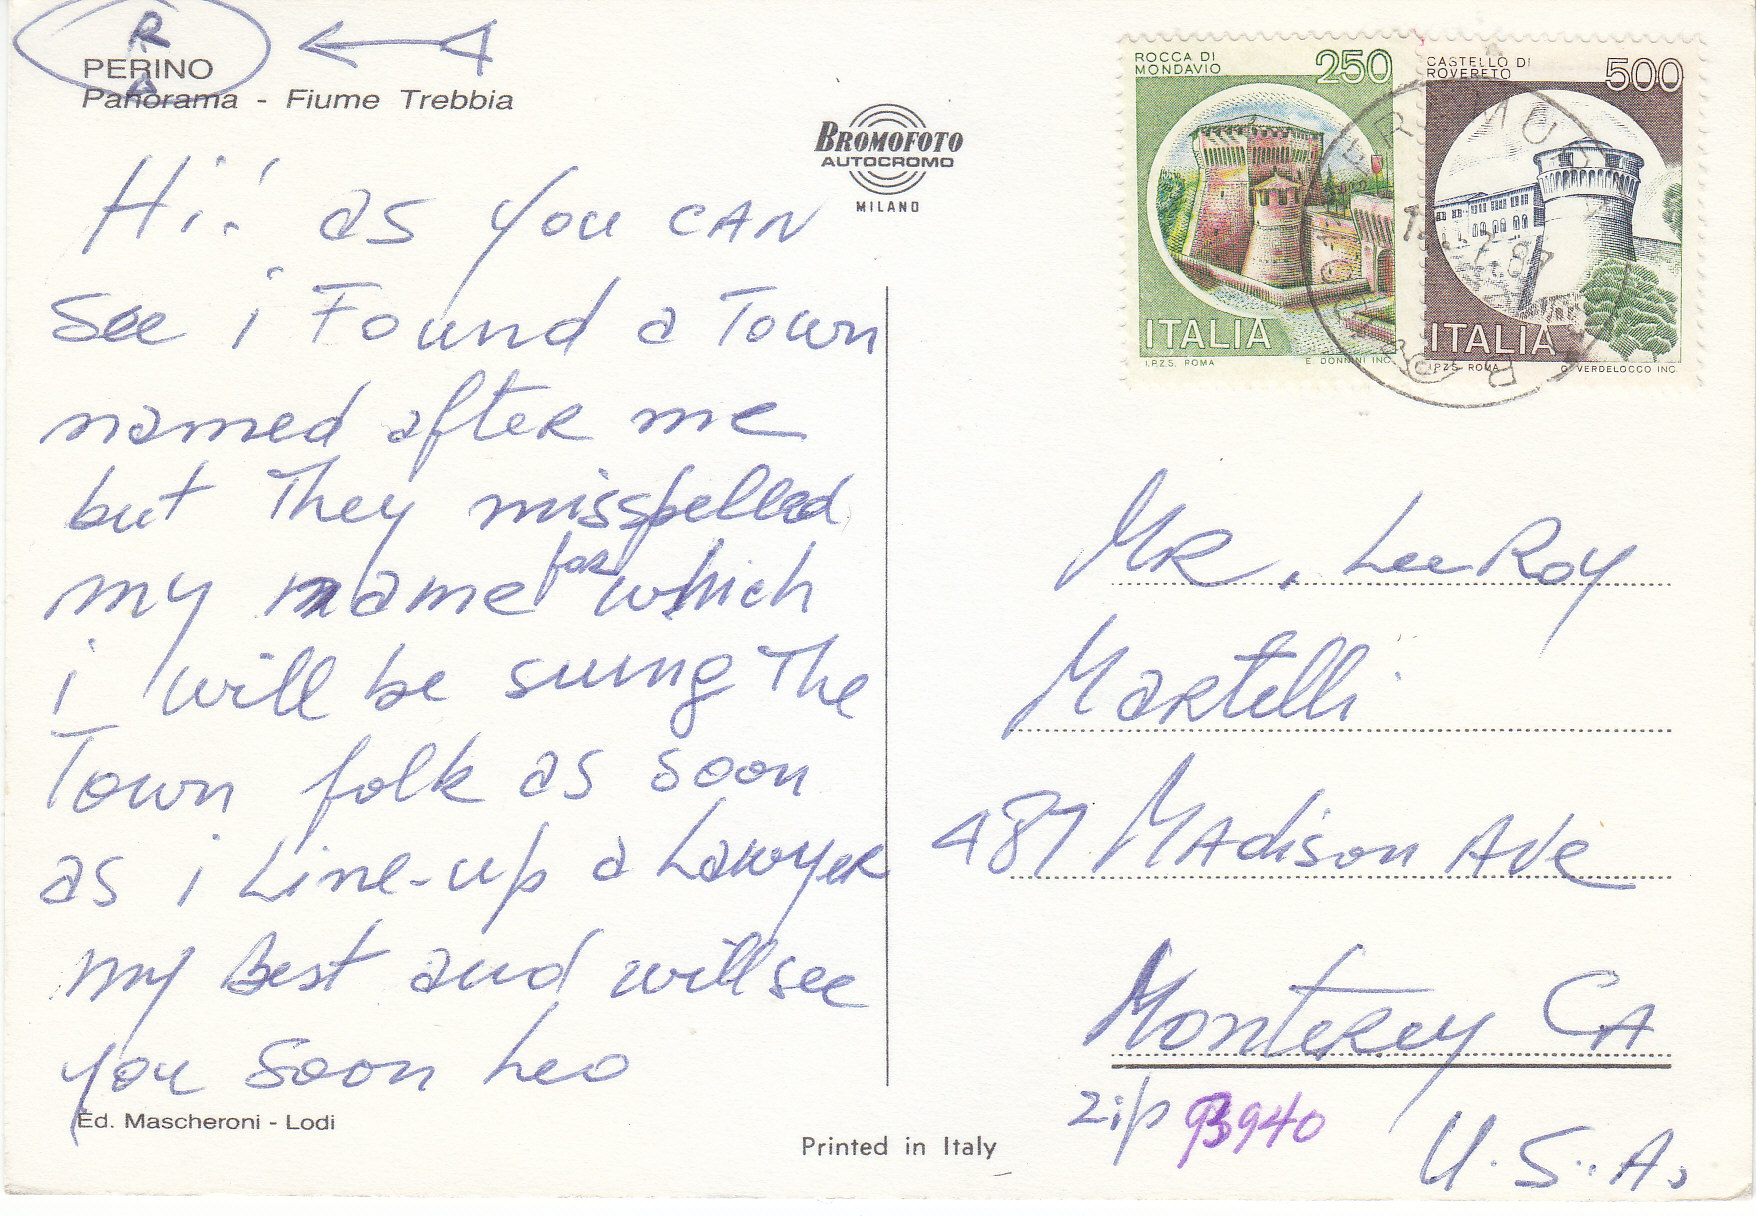 R
PERINO
A
Panorama - Fiume Trebbia
BROMOFOTO
AUTOCROMO
MILANO
Hi! as you CAN
see i Found a Town
named after me
but They misspelled
my name for which
i will be suing The
Town folk as soon
as i Line-up a Lawyer
my Best and will see
you soon Leo
Ed. Mascheroni - Lodi
Printed in Italy
ROCCA DI
MONDAVIO
250
ITALIA
I.P.Z.S. ROMA
E. DONNINI INC.
CASTELLO DI
ROVERETO
500
ITALIA
I.P.Z.S. ROMA
G. VERDELOCCO INC.
MR. LeeRoy
Martelli
487 MAdison Ave
Monterey CA
zip 93940
U.S.A.